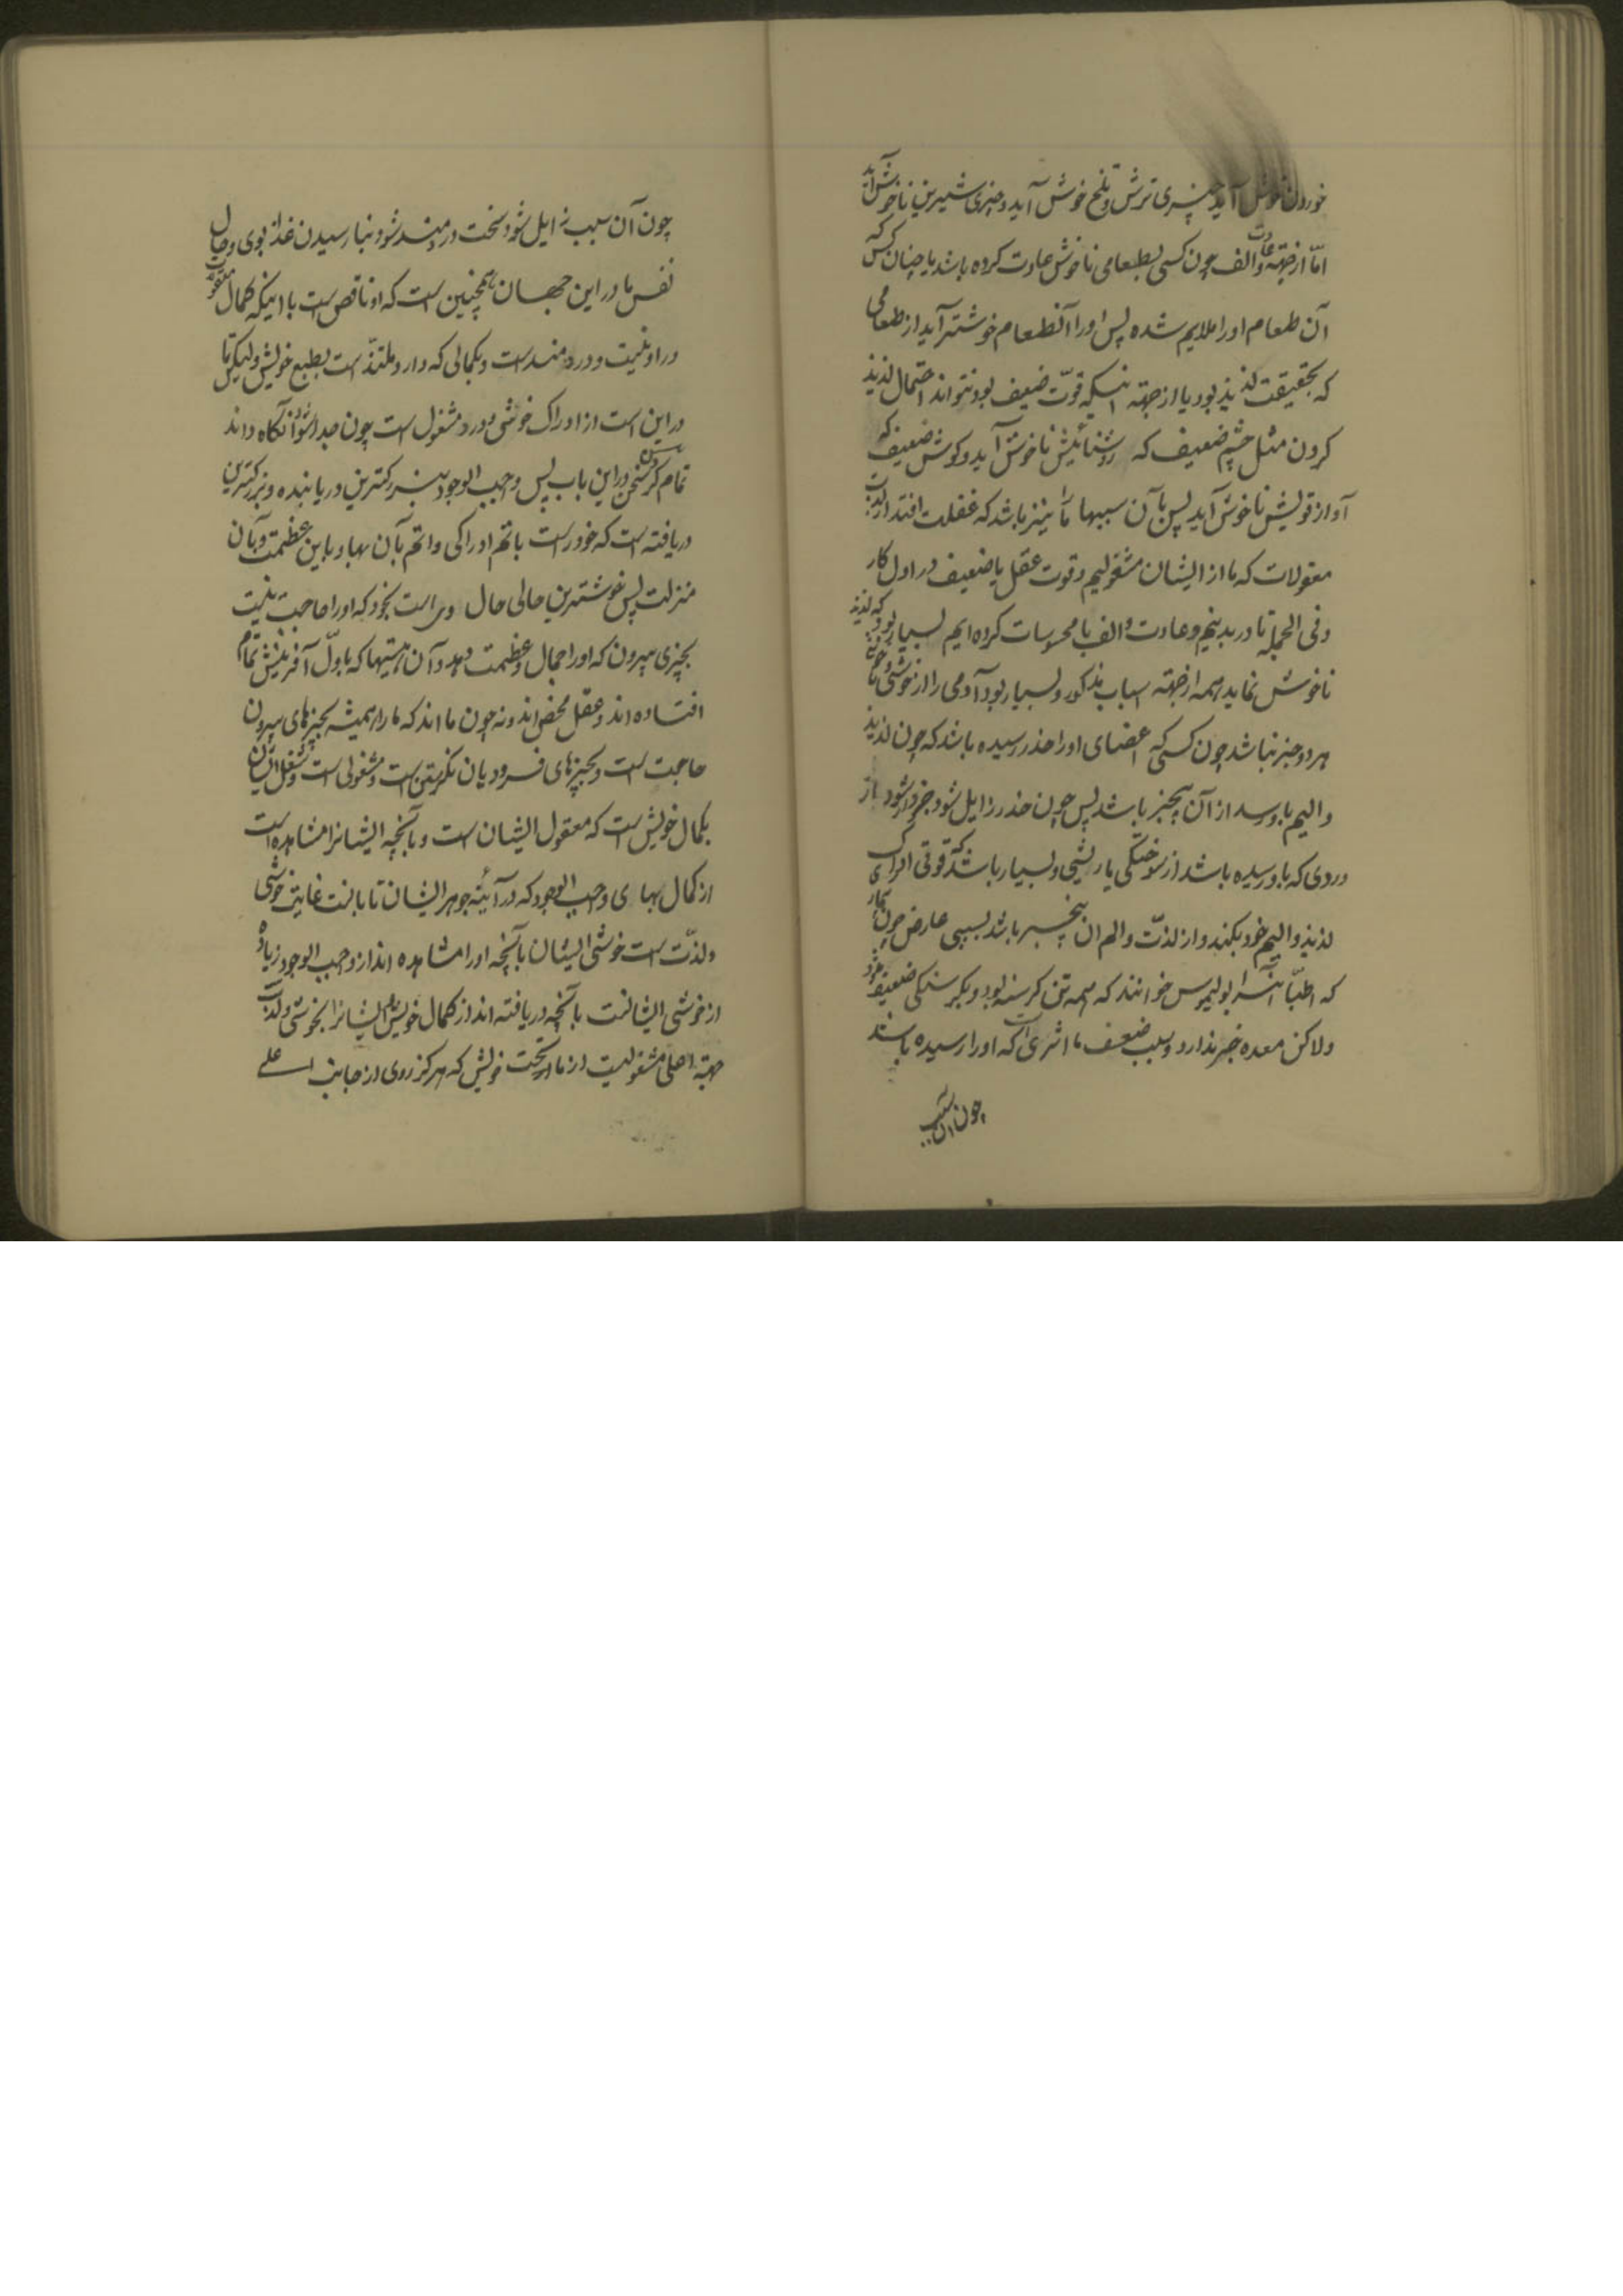 خوردن خوش آید چیزی ترش و تلخ خوش آید و چیزی شیرین ناخوش آید
امّا از جهة عادت و الف چون کسی بطعامی ناخوش عادت کرده باشد یا چنان کس که
آن طعام او را ملایم شده پس او را آنطعام خوشتر آید از طعامی
که بحقیقت لذیذ بود یا از جهة اینکه قوّت ضعیف بود نتواند احتمال لذیذ
کردن مثل چشم ضعیف که روشنائیش ناخوش آید و کوش ضعیف که
آواز قویش ناخوش آید پس بآن سببها ما نیز باشد که غفلت افتد از لذت
معقولات که ما از ایشان مشغولیم و قوت عقل یا ضعیف در اول کار
و فی الجمله تا در بدنیم و عادت و الف با محسوسات کرده ایم بسیار بود که لذیذ
ناخوش نماید همه از جهة اسباب مذکور و بسیار بود آدمی را از خوشی و ناخوشی
هر دو خبر نباشد چون کسی که اعضای او را خذر رسیده باشد که چون لذیذ
و الیم باو رسد از آن بیخبر باشد پس چون خذر زایل شود خبردار شود از
دردی که باو رسیده باشد از سوختکی یا ریشی و بسیار باشد که قوتی ادراک
لذیذ و الیم خود بکند و از لذّت و الم آن بیخبر باشد بسببی عارض چون بیمار
که اطبّا آنرا بولیموس خوانند که همه تن کرسنه بود و بکرسنکی ضعیف شود
ولاکن معده خبر ندارد و بسبب ضعف ما اثری است که او را رسیده باشد
چون آن سبب
چون آن سبب زایل شود سخت دردمند شود بنا رسیدن غذا بوی و حال
نفس ما در این جهان همچنین است که او ناقص است با اینکه کمال معقولات
در او نیست و دردمند است و بکمالی که دارد ملتذّ است بطبع خویش ولیکن تا
در این است از ادراک خوشی و درد مشغول است چون جدا شود آنکاه داند
تمام کردن سخن در این باب پس واجب الوجود بزرکترین دریابنده و بزرکترین
دریافته است که خود راست باتم ادراکی و اتم بآن بها و باین عظمت و بآن
منزلت پس خوشترین حالی حال وی است بخود که او را حاجت نیست
بچیزی بیرون که او را جمال و عظمت دهد و آن هستیها که باوّل آفرینش تمام
افتاده اند و عقل محض اند و نه چون ما اند که ما را همیشه بچیزهای بیرون
حاجت است و بچیزهای فرودیان نکرستن است و مشغولی است و شغل ایشان
بکمال خویش است که معقول ایشان است و بآنچه ایشانرا مشاهده است
از کمال بهای واجب الوجود که در آئینه جوهر ایشان تابانست غایت خوشی
و لذّت است خوشی ایشان بآنچه او را مشاهده اند از واجب الوجود زیاده
از خوشی ایشانست بآنچه دریافته اند از کمال خویش ایشانرا بخوشی و لذت
جهة اعلی مشغولیت از ما تحت خویش که هرکز روی از جانب اعلی